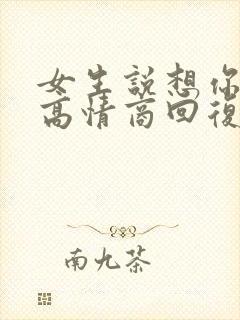 女生說想你
高情商回復
南九茶